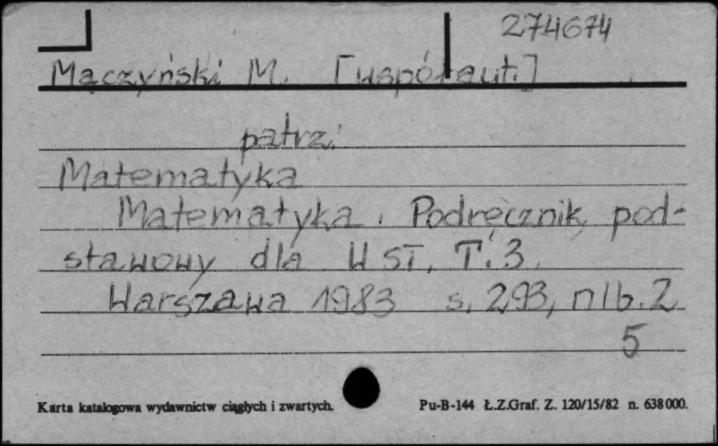 274674
Mączyński M. [współaut.]
patrz:
Matematyka
Matematyka. Podręcznik pod-
stawowy dla WST. T. 3.
Warszawa 1983 s. 293, nlb. 2
5
Karta katalogowa wydawnictw ciągłych i zwartych. Pu-B-144 Ł.Z.Graf. Z. 120/15/82 n. 638000.